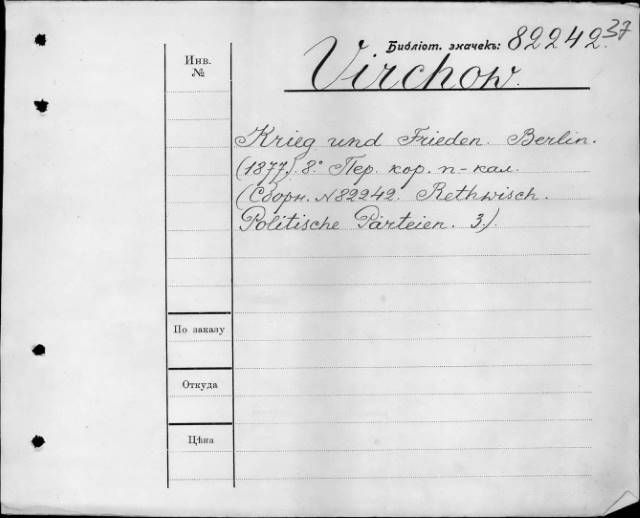 Библіот. значекъ: 82242.37
Virchow.
Инв.
№
Krieg und Frieden. Berlin.
(1877). 8.° Пер. кор. п-кал.
(Сборн. N 82242. Rethwisch.
Politische Parteien. 3.).
По заказу
Откуда
Цѣна